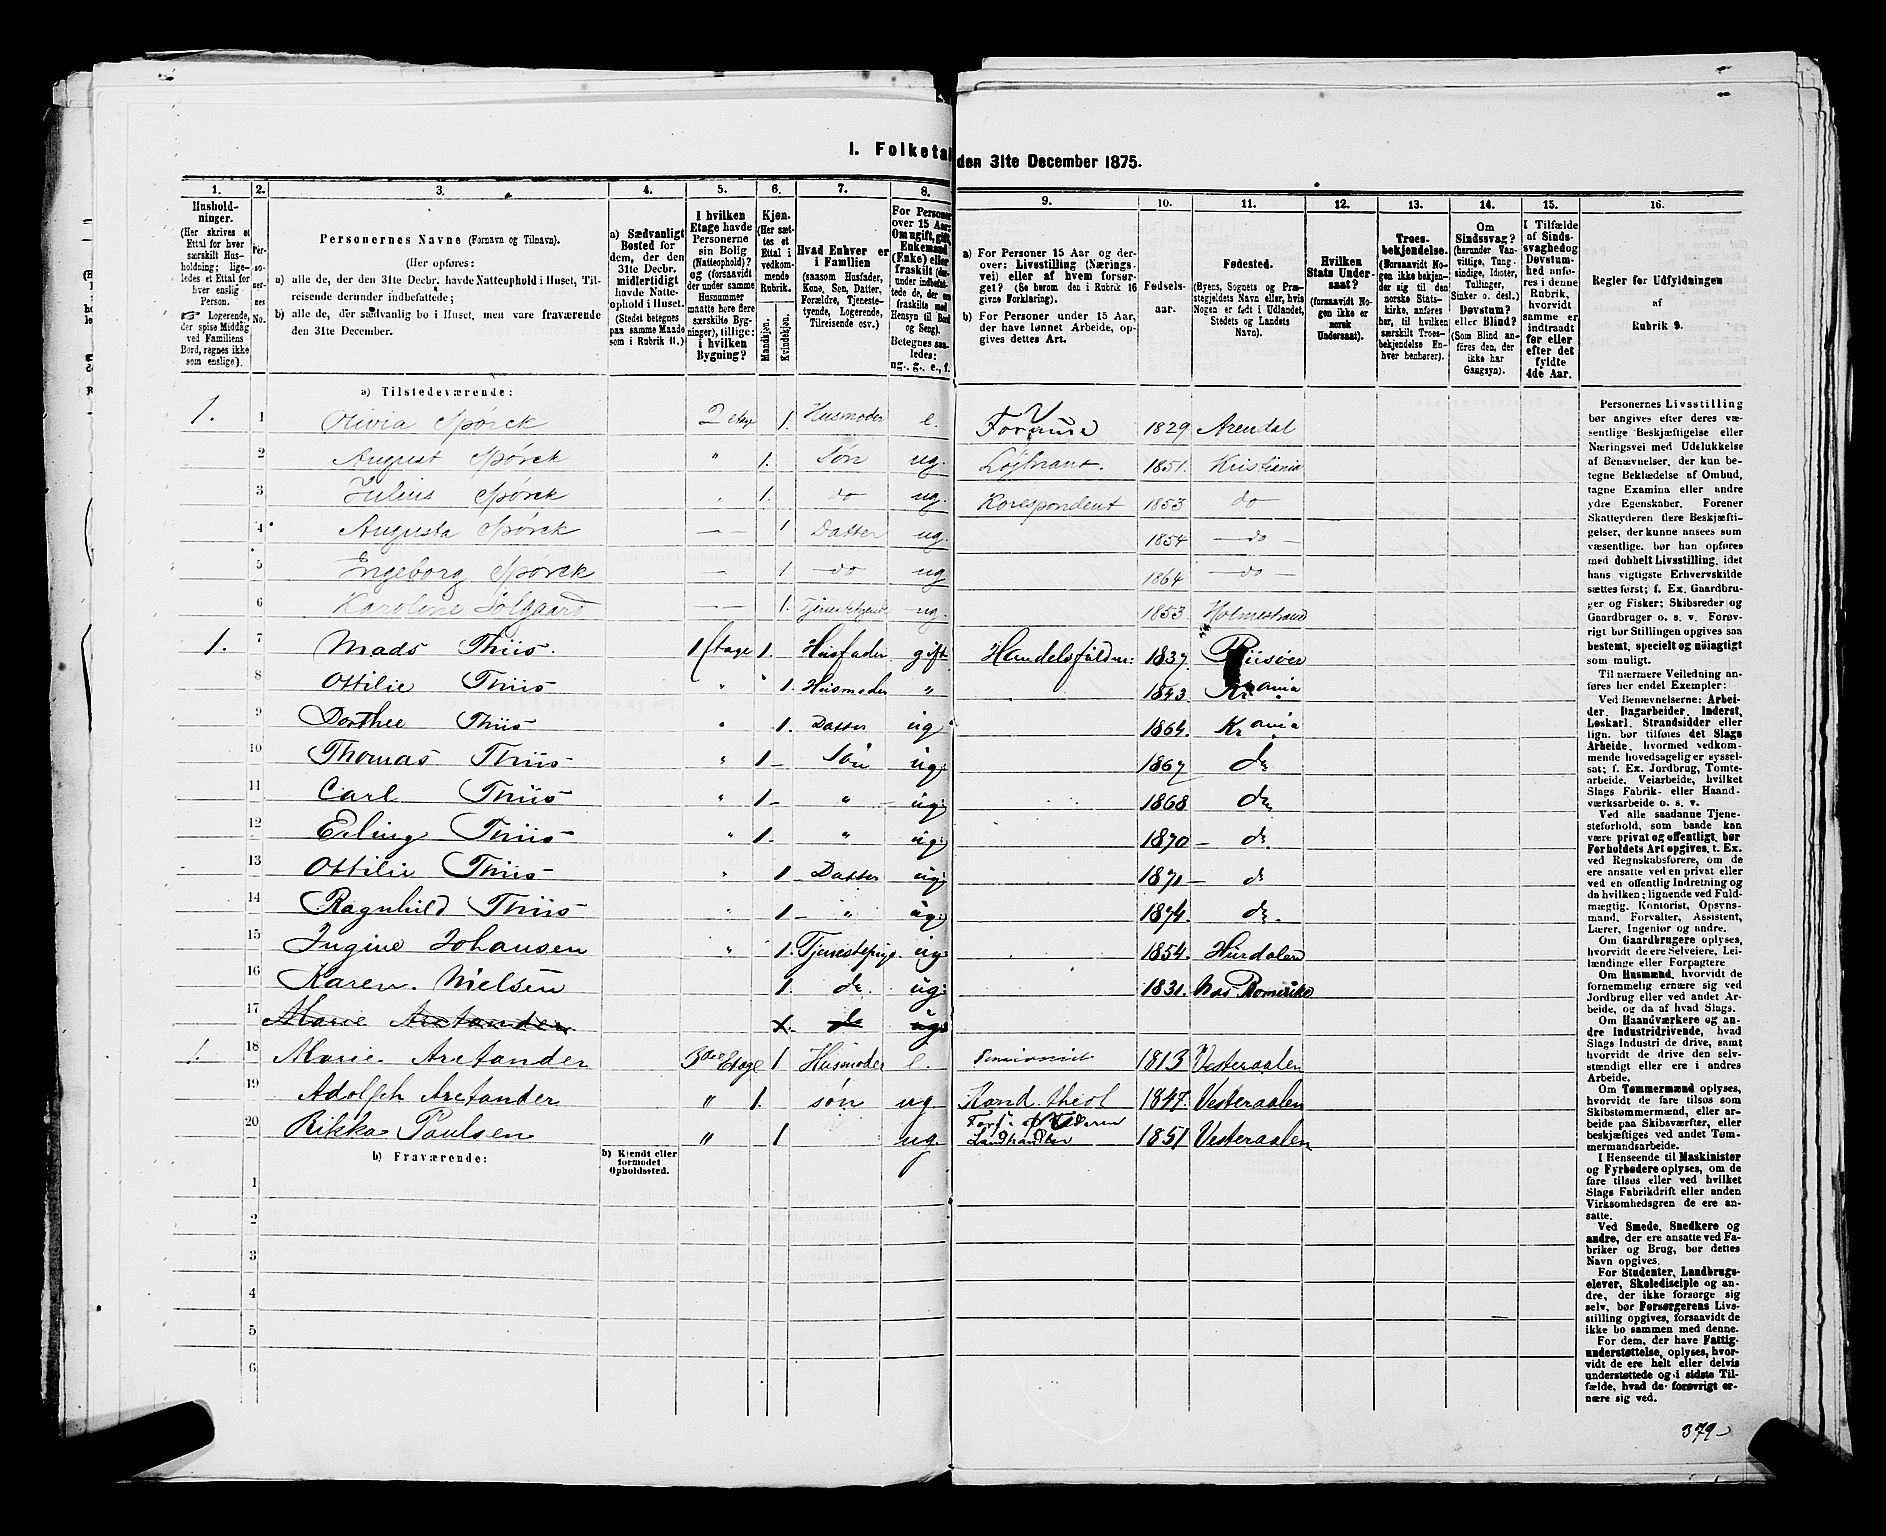 1. Folketal den 31te December 1875.
1. 2. 3. 4. 5. 6. 7. 8. 9. 10. 11. 12. 13. 14. 15. 16.
Husholdninger. (Her skrives et Ettal for hver særskilt Husholdning; ligeledes et Ettal for hver enslig Person. Logerende, der spise Middag ved Familiens Bord, regnes ikke som enslige).
Personernes No.
Personernes Navne (Fornavn og Tilnavn).
(Her opføres:
a) alle de, der den 31te Decbr. havde Natteophold i Huset, Tilreisende derunder indbefattede;
b) alle de, der sædvanlig bo i Huset, men vare fraværende den 31te December.
a) Sædvanligt Bosted for dem, der den 31te Decbr. midlertidigt havde Natteophold i Huset. (Stedet betegnes paa samme Maade som i Rubrik 11.)
I hvilken Etage havde Personerne sin Bolig (Natteophold)? og (forsaavidt der under samme Husnummer maatte høre flere særskilte Bygninger), tillige: i hvilken Bygning?
Kjøn. (Her sættes et Ettal i vedkommende Rubrik. Mandkjøn. Kvindekjøn.
Hvad Enhver er i Familien (saasom Husfader, Kone, Søn, Datter, Forældre, Tjenestetyende, Logerende, Tilreisende osv.)
For Personer over 15 Aar: Om ugift, gift, Enkemand (Enke) eller fraskilt
Betegnes saaledes: ug., g., e., f.
a) For Personer 15 Aar og derover: Livsstilling (Næringsvei) eller af hvem forsørget? (Se herom den i Rubrik 16 givne Forklaring).
b) For Personer under 15 Aar, der have lønnet Arbeide, opgives dettes Art.
Fødselsaar.
Fødested. (Byens, Sognets og Præstegjeldets Navn eller, hvis Nogen er født i Udlandet, Stedets og Landets Navn).
Hvilken Stats Undersaat? (forsaavidt Nogen ikke er norsk Undersaat).
Troesbekjendelse. (Forsaavidt Nogen ikke bekjender sig til den norske Statskirke, anføres her, til hvilken særskilt Troesbekjendelse Enhver henhører).
Om Sindssvag? (herunder Vanvittige, Tungsindige, Idioter, Tullinger, Sinker o. desl.) Døvstum? eller Blind? (Som Blind anføres den, der ikke har Gangsyn).
I Tilfælde af Sindssvaghed og Døvstumhed anføres i denne Rubrik, hvorvidt samme er indtraadt før eller efter det fyldte 4de Aar.
Regler for Udfyldningen af Rubrik 9.
a) Tilstedeværende:
1. 1 Olivia Spörck 2 etage 1. Husmoder e. Formue 1829 Arendal
2 August Spörck " 1. Søn ug. Løjtnant. 1851. Kristiania
3 Julius Spörck 1. do ug. Korespondent 1853 do
4 Augusta Spörck — 1 Datter ug. 1854 — do —
5 Engeborg Spörck — 1 — do ug 1864 — do —
6 Karoline Solgaard — 1. ug. 1853 Holmestrand
1. 7 Mads Thiis. 1 Etage 1. Husfader gift 1837. Riisøer
8 Ottilie Thiis " 1. Husmoder " 1843. Krania
9 Dorthee Thiis " 1. Datter ug 1864. Krania
10 Thomas Thiis " 1 — Søn ug. 1867 do
11 Carl Thiis " 1 — " ug. 1868 do
12 Erling Thiis " 1. " ug. 1870 — do
13 Ottilie Thiis " 1 — Datter ug. 1871 — do
14 Ragnhild Thiis " 1 — " ug. 1874. do.
15 Ingine Johansen " 1. Tjenestepige ug. 1854. Hurdalen
16 Karen. Nielsen 1. do. ug. 1831. Næs Romerike
17 Marie Aretander x. do ug
1. 18 Marie Aretander 3die Etage 1 Husmoder e. Pensionist 1813 Vesteraalen
19 Adolph Aretander " 1. søn ug. Kand. theol 1847. Vesteraalen
20 Rikka Paulsen " 1 ug. Fors. af Faderen Landhandler 1851 Vesteraalen
b) Fraværende: b) Kjendt eller formodet Opholdssted.
1
2
3
4
5
6
Personernes Livsstilling bør angives efter deres væsentlige Beskjæftigelse eller Næringsvei med Udelukkelse af Benævnelser, der kun betegne Beklædelse af Ombud, tagne Examina eller andre ydre Egenskaber. Forener Skatteyderen flere Beskjæftigelser, der kunne ansees som væsentlige, bør han opføres med dobbelt Livsstilling, idet hans vigtigste Erhvervskilde sættes først; f. Ex. Gaardbruger og Fisker; Skibsreder og Gaardbruger o. s. v. Forøvrigt bør Stillingen opgives saa bestemt, specielt og nøiagtigt som muligt.
Til nærmere Veiledning anføres her endel Exempler:
Ved Benævnelserne: Arbeider, Dagarbeider, Inderst, Løskarl, Strandsidder eller lign. bør tilføies det Slags Arbeide, hvormed vedkommende hovedsagelig er sysselsat; f. Ex. Jordbrug, Tomtearbeide, Veiarbeide, hvilket Slags Fabrik- eller Haandværksarbeide o. s. v.
Ved alle saadanne Tjenesteforhold, som baade kan være privat og offentligt, bør Forholdets Art opgives, t. Ex. ved Regnskabsførere, om de ere ansatte ved en privat eller ved en offentlig Indretning og da hvilken; lignende ved Fuldmægtig, Kontorist, Opsynsmand, Forvalter, Assistent, Lærer, Ingeniør og andre.
Om Gaardbrugere oplyses, hvorvidt de ere Selveiere, Leilændinge eller Forpagtere
Om Husmænd, hvorvidt de fornemmelig ernære sig ved Jordbrug eller ved andet Arbeide, og da af hvad Slags.
Om Haandværkere og andre Industridrivende, hvad Slags Industri de drive, samt hvorvidt de drive den selvstændigt eller ere i andres Arbeide.
Om Tømmermænd oplyses, hvorvidt de fare tilsøs som Skibstømmermænd, eller arbeide paa Skibsværfter, eller beskjæftiges ved andet Tømmermandsarbeide.
I Henseende til Maskinister og Fyrbødere oplyses, om de fare tilsøs eller ved hvilket Slags Fabrikdrift eller anden Virksomhedsgren de ere ansatte.
Ved Smede, Snedkere og andre, der ere ansatte ved Fabriker og Brug, bør dettes Navn opgives.
For Studenter, Landbrugselever, Skoledisciple og andre, der ikke forsørge sig selv, bør Forsørgerens Livsstilling opgives, forsaavidt de ikke bo sammen med denne.
For dem, der have Fattigunderstøttelse, oplyses, hvorvidt de ere helt eller delvis understøttede og i sidste Tilfælde, hvad de forøvrigt ernære sig ved.
379